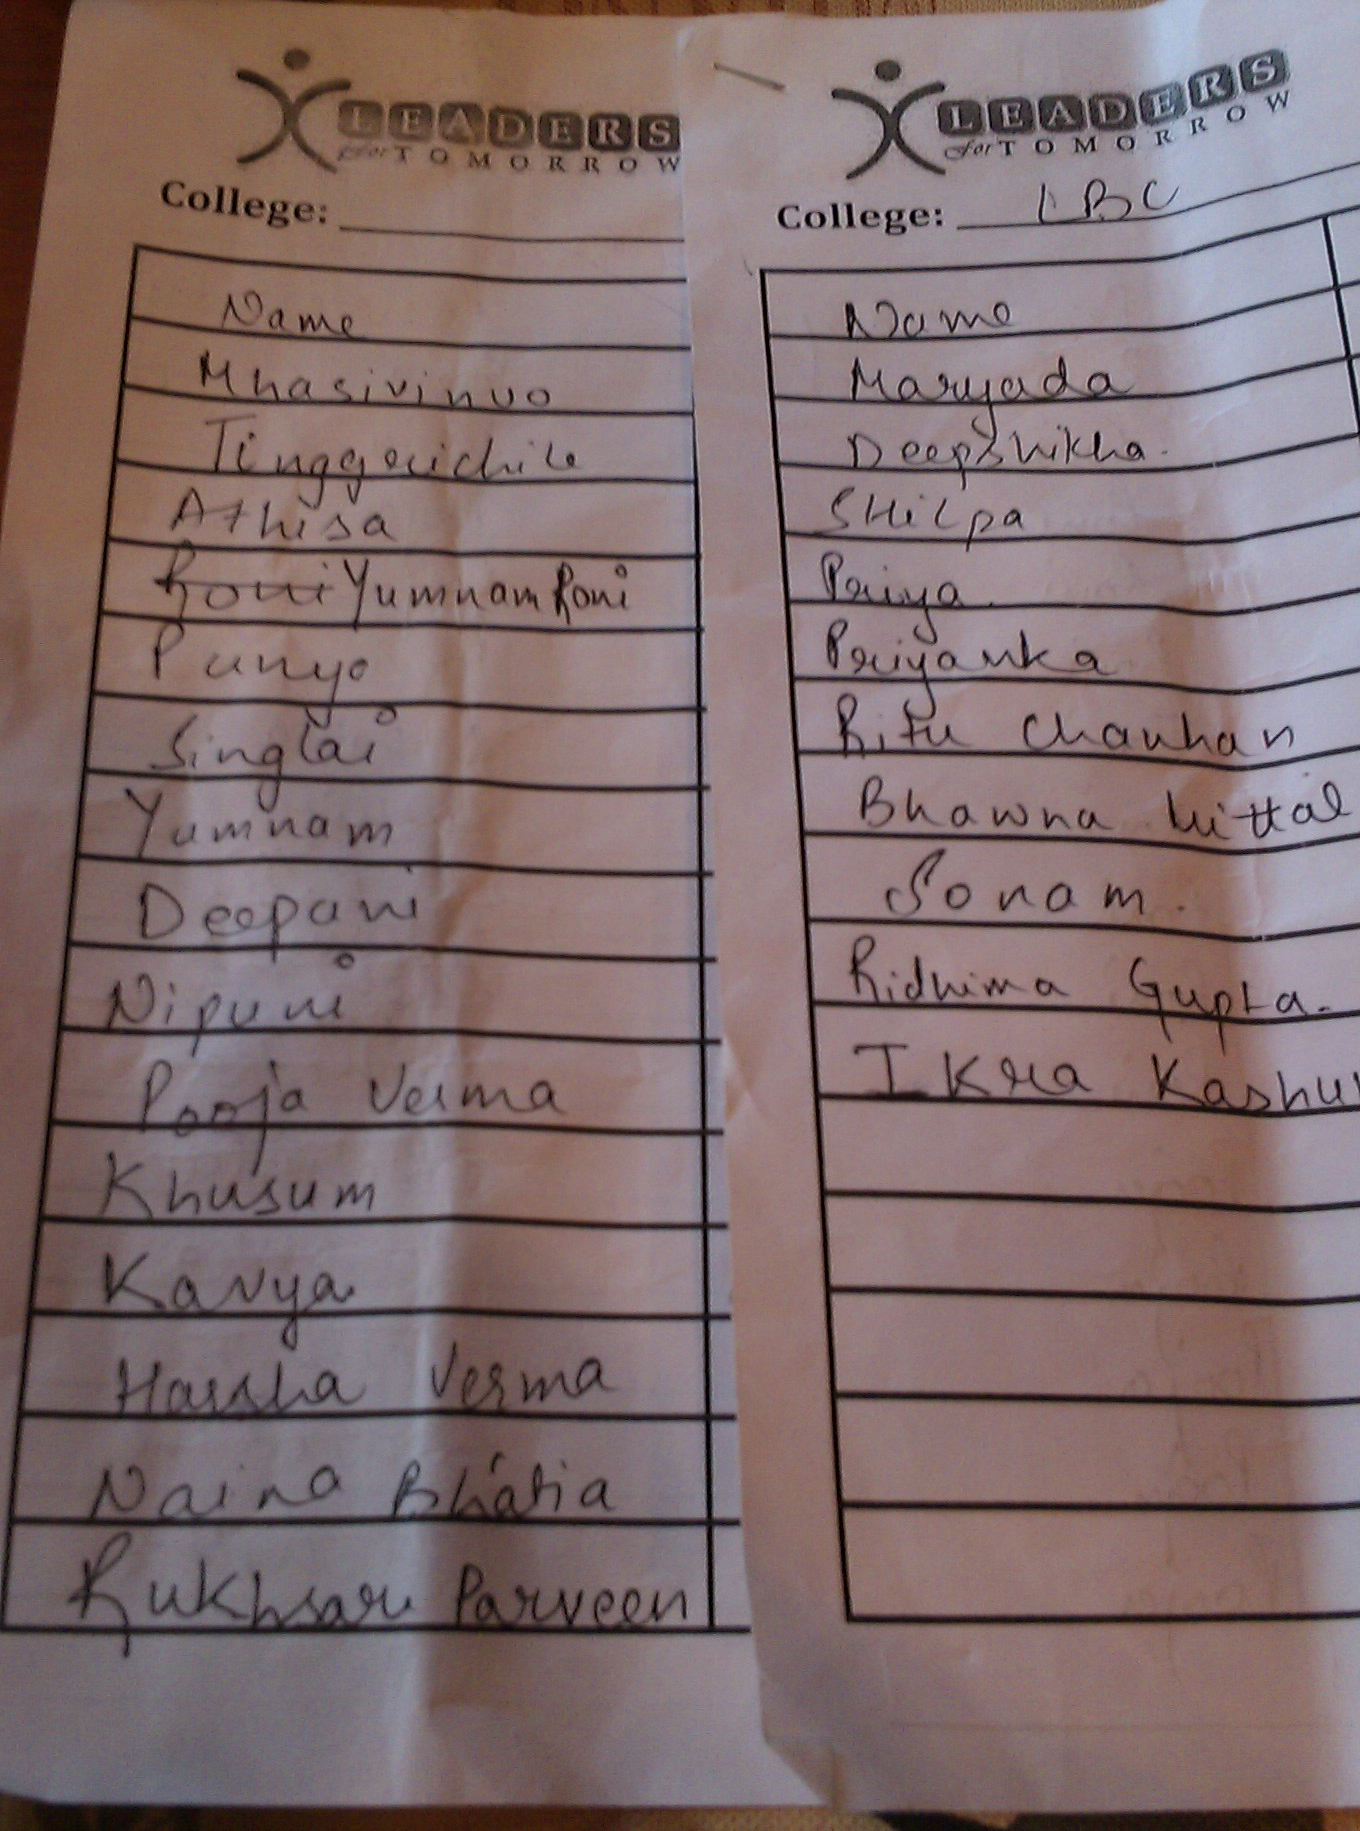 LEADERS
for TOMORROW
College:
Name
Mhasivinuo
Athisa
Roni Yumnam Roni
Punyo
Singlai
Yumnam
Deepani
Nipuni
Pooja Verma
Khusum
Kavya
Harsha Verma
Naina Bhatia
Rukhsar Parveen
LEADERS
for TOMORROW
College: IBC
Name
Maryada
Deepshikha.
SHilpa
Priya.
Priyanka
Ritu Chauhan
Bhawna Mittal
Sonam.
Ridhima Gupta.
Ikra